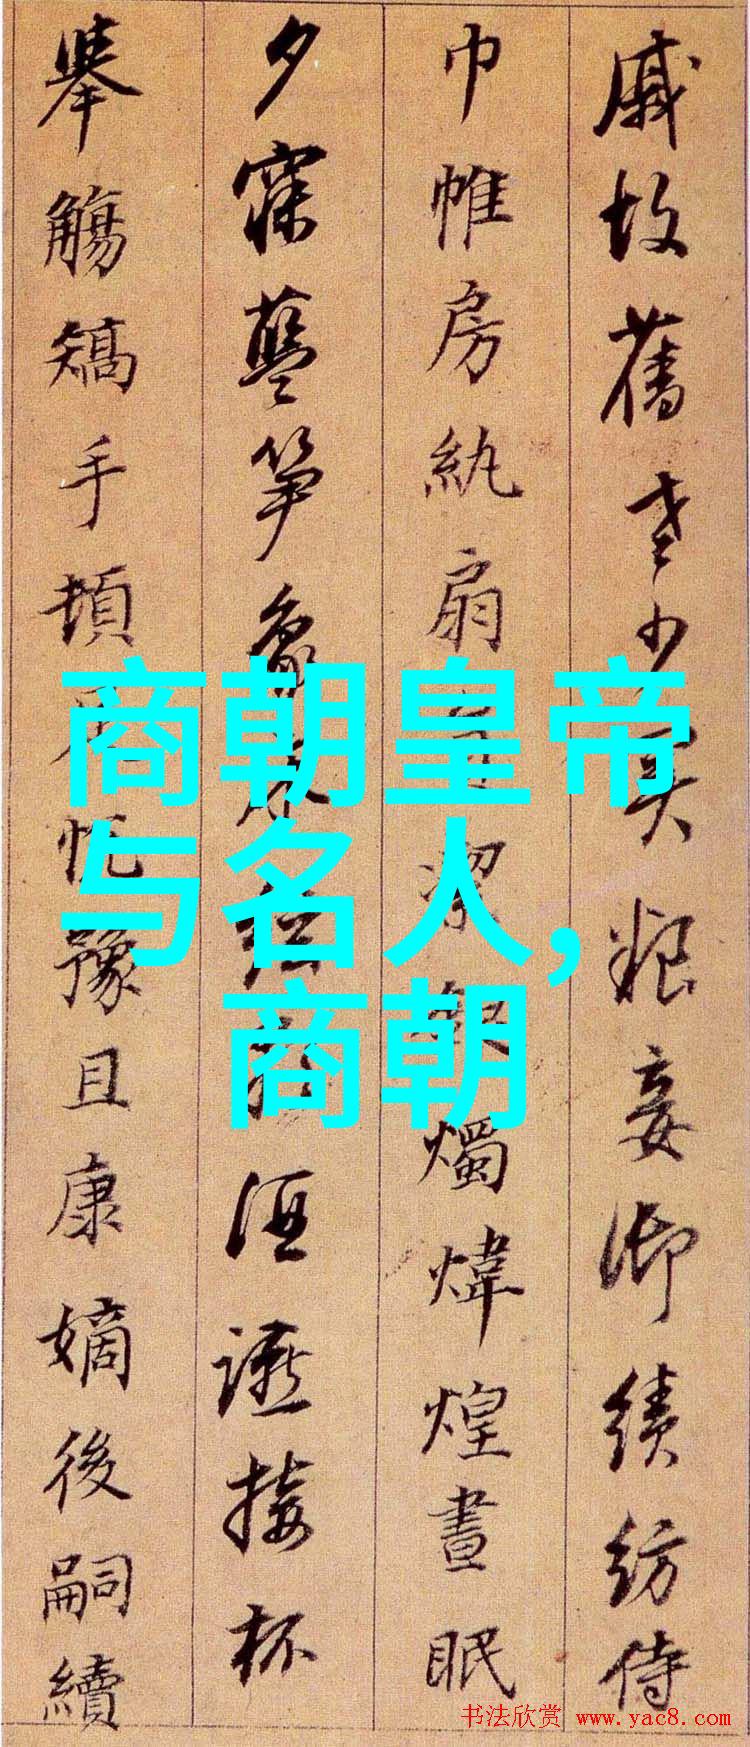 戚故舊老少異粮妾御績紡侍
巾帷房紈扇潔銀燭煒煌晝眠
夕寐藍笋象床絃酒讌接杯
舉觴矯手頓足悅豫且康嫡後嗣續
商朝皇帝
与名人,
商朝
书法欣赏 www.yac8.com